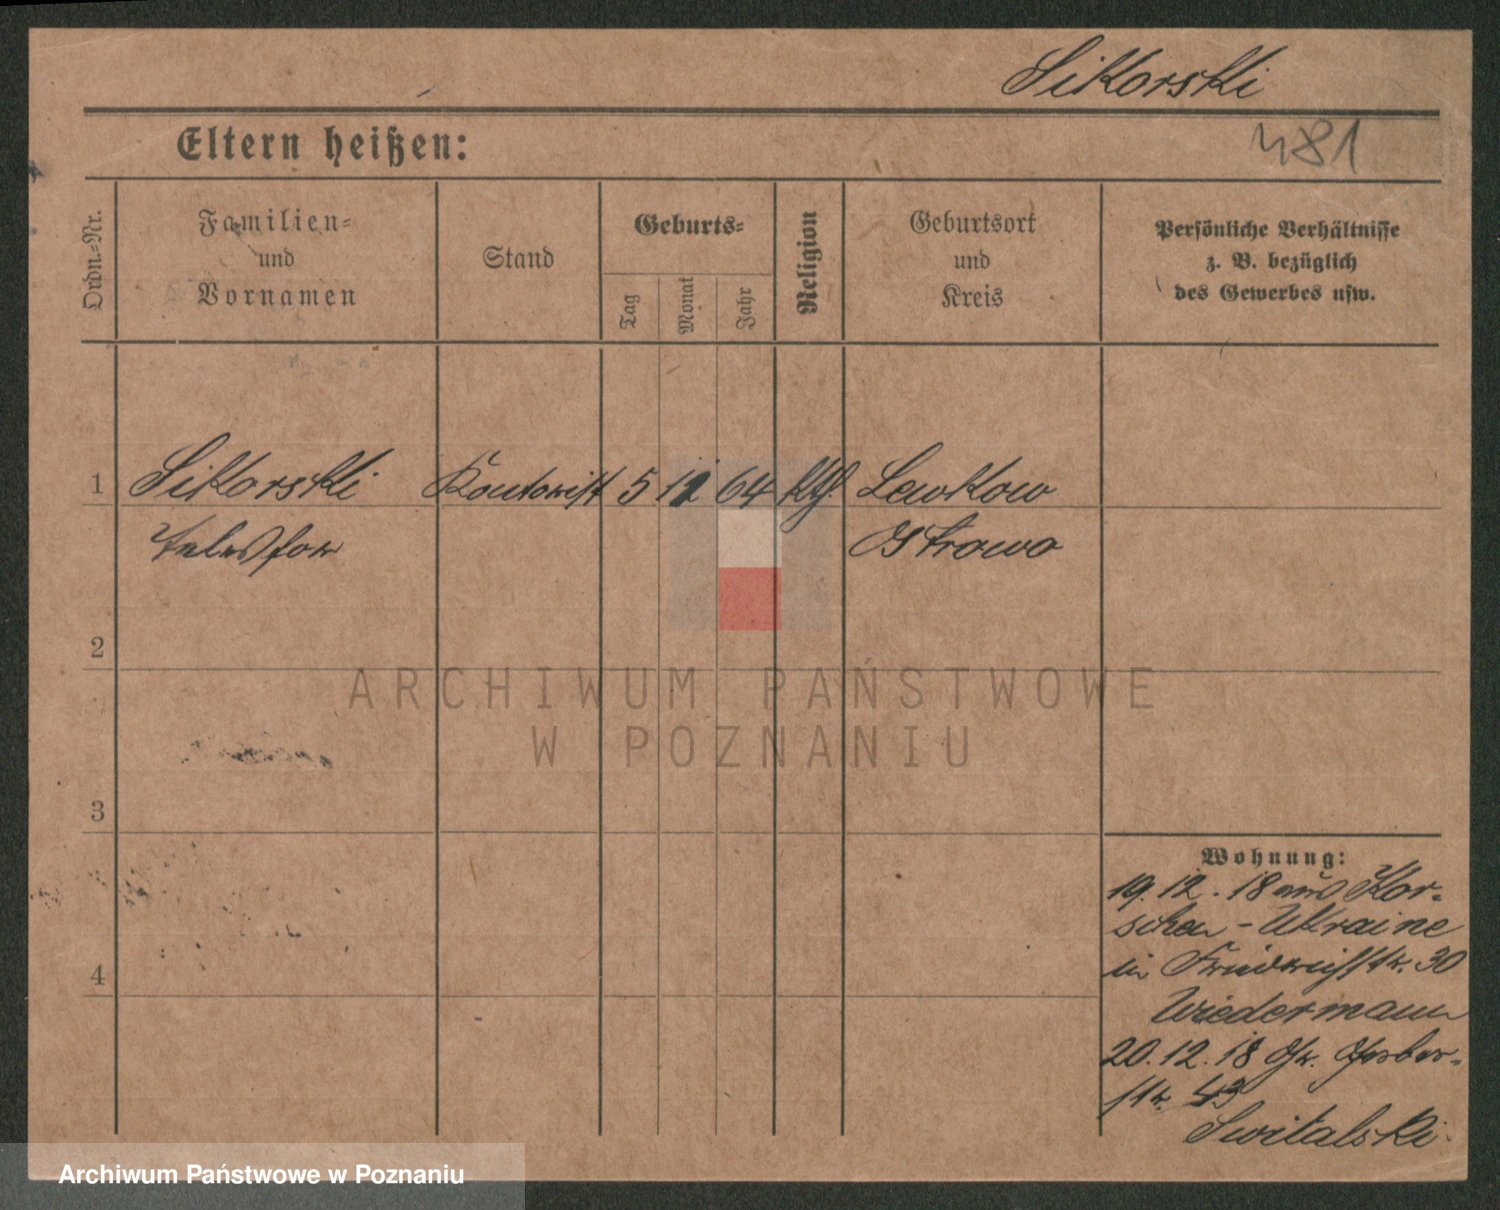 Sikorski
481
Eltern heißen:
Ordn.-Nr.
Familien-
und
Vornamen
Stand
Geburts-
Tag
Monat
Jahr
Religion
Geburtsort
und
Kreis
Persönliche Verhältnisse
z. B. bezüglich
des Gewerbes usw.
1 Sikorski Kontorist 5 12 64 kth. Lewkow
Telesfor Ostrowo
2
3
4
Wohnung:
19.12.18 aus Kor-
schen - Ukraine
in Friedrichstr. 30
Wiedermann
20.12.18 Gr. Gerber-
str. 43
Switalski
ARCHIWUM PAŃSTWOWE
W POZNANIU
Archiwum Państwowe w Poznaniu